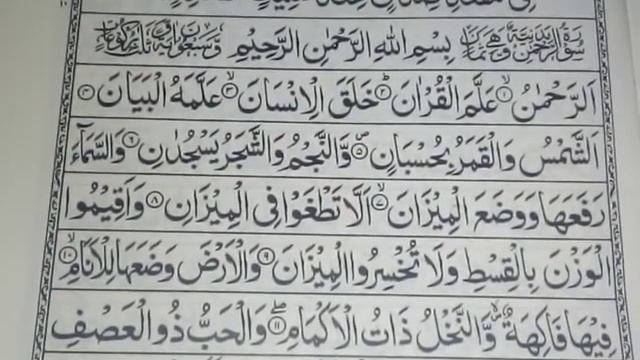 سُوْرَةُ الرَّحْمٰنِ بِسْمِ اللهِ الرَّحْمٰنِ الرَّحِيْمِ
اَلرَّحْمٰنُ ۙ﴿۱﴾ عَلَّمَ الْقُرْاٰنَ ؕ﴿۲﴾ خَلَقَ الْاِنْسَانَ ۙ﴿۳﴾ عَلَّمَهُ الْبَيَانَ ﴿۴﴾
اَلشَّمْسُ وَالْقَمَرُ بِحُسْبَانٍ ﴿۵﴾ وَّالنَّجْمُ وَالشَّجَرُ يَسْجُدٰنِ ﴿۶﴾ وَالسَّمَآءَ
رَفَعَهَا وَوَضَعَ الْمِيْزَانَ ۙ﴿۷﴾ اَلَّا تَطْغَوْا فِى الْمِيْزَانِ ﴿۸﴾ وَاَقِيْمُوا
الْوَزْنَ بِالْقِسْطِ وَلَا تُخْسِرُوا الْمِيْزَانَ ﴿۹﴾ وَالْاَرْضَ وَضَعَهَا لِلْاَنَامِ ۙ﴿۱۰﴾
فِيْهَا فَاكِهَةٌ ۙ وَّالنَّخْلُ ذَاتُ الْاَكْمَامِ ۖ﴿۱۱﴾ وَالْحَبُّ ذُو الْعَصْفِ